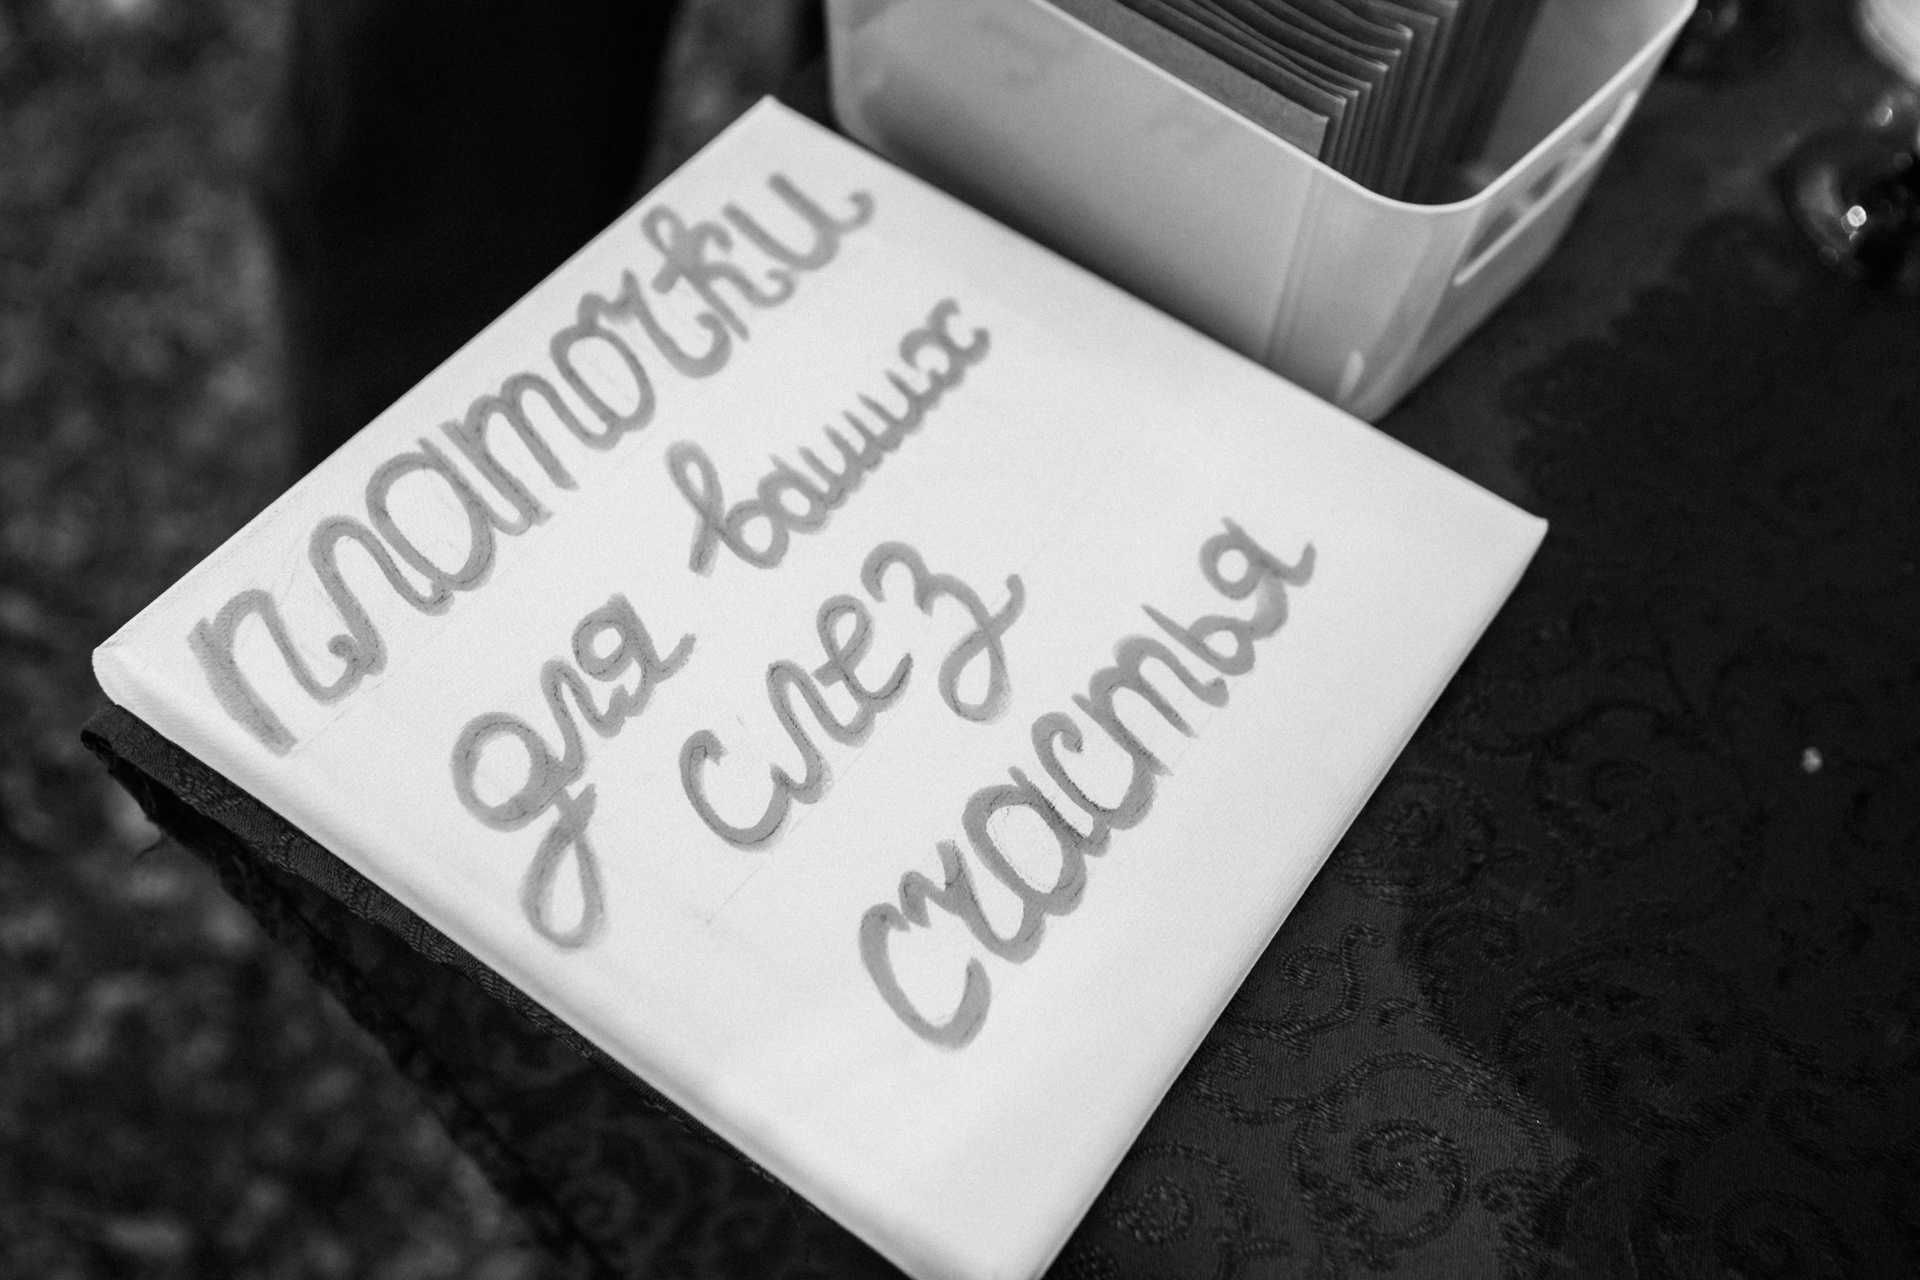 платочки
для ваших
слез
счастья